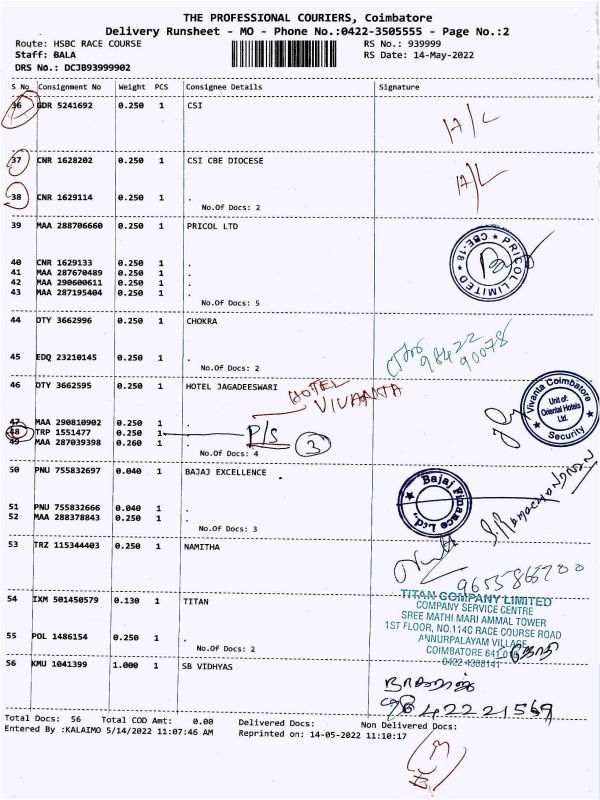 THE PROFESSIONAL COURIERS, Coimbatore
Delivery Runsheet - MO - Phone No.:0422-3505555 - Page No.:2
Route: HSBC RACE COURSE RS No.: 939999
Staff: BALA RS Date: 14-May-2022
DRS No.: DCJB93999902
S No Consignment No Weight PCS Consignee Details Signature
36 GDR 5241692 0.250 1 CSI
A/L
37 CNR 1628202 0.250 1 CSI CBE DIOCESE
A/L
38 CNR 1629114 0.250 1 .
No.Of Docs: 2
39 MAA 288706660 0.250 1 PRICOL LTD
PRICOL LIMITED ★ CBE-18 ★
40 CNR 1629133 0.250 1 .
41 MAA 287670489 0.250 1 .
42 MAA 290600611 0.250 1 .
43 MAA 287195404 0.250 1 .
No.Of Docs: 5
44 OTY 3662996 0.250 1 CHOKRA
98422
90078
45 EDQ 23210145 0.250 1 .
No.Of Docs: 2
46 OTY 3662595 0.250 1 HOTEL JAGADEESWARI
HOTEL
VIVANTA
Vivanta Coimbatore
Unit of:
Oriental Hotels
Ltd.
Security
47 MAA 290810902 0.250 1 .
48 TRP 1551477 0.250 1 P/S
49 MAA 287039398 0.260 1 . 3
No.Of Docs: 4
50 PNU 755832697 0.040 1 BAJAJ EXCELLENCE
Bajaj Finance Ltd.,
51 PNU 755832666 0.040 1 .
52 MAA 288378843 0.250 1 .
No.Of Docs: 3
53 TRZ 115344403 0.250 1 NAMITHA
54 IXM 501450579 0.130 1 TITAN
TITAN COMPANY LIMITED
COMPANY SERVICE CENTRE
SREE MATHI MARI AMMAL TOWER
1ST FLOOR, NO.114C RACE COURSE ROAD
ANNURPALAYAM VILLAGE
COIMBATORE 641 018
0422 4388141
55 POL 1486154 0.250 1 .
No.Of Docs: 2
56 KMU 1041399 1.000 1 SB VIDHYAS
9842221569
Total Docs: 56 Total COD Amt: 0.00 Delivered Docs: Non Delivered Docs:
Entered By :KALAIMO 5/14/2022 11:07:46 AM Reprinted on: 14-05-2022 11:10:17